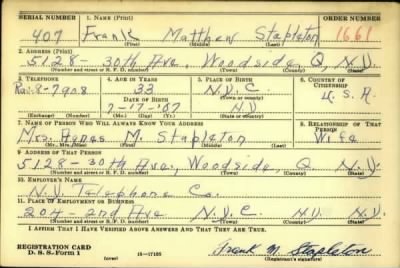 SERIAL NUMBER 1. NAME (Print) ORDER NUMBER
407 Frank Matthew Stapleton 1661
(First) (Middle) (Last)
2. ADDRESS (Print)
5128-30th Ave, Woodside, Q, N.Y.
(Number and street or R. F. D. number) (Town) (County) (State)
3. TELEPHONE 4. AGE IN YEARS 5. PLACE OF BIRTH 6. COUNTRY OF CITIZENSHIP
33 N.Y.C.
8-7908 DATE OF BIRTH (Town or county) U.S.A.
7-17-'07 N.Y.
(Exchange) (Number) (Mo.) (Day) (Yr.) (State or country)
7. NAME OF PERSON WHO WILL ALWAYS KNOW YOUR ADDRESS 8. RELATIONSHIP OF THAT PERSON
Mrs. Agnes M. Stapleton Wife
(Mr., Mrs., Miss) (First) (Middle) (Last)
9. ADDRESS OF THAT PERSON
5128-30th Ave, Woodside, Q. N.Y.
(Number and street or R. F. D. number) (Town) (County) (State)
10. EMPLOYER'S NAME
N.Y. Telephone Co.
11. PLACE OF EMPLOYMENT OR BUSINESS
204-2nd Ave N.Y.C. N.Y. N.Y.
(Number and street or R. F. D. number) (Town) (County) (State)
I AFFIRM THAT I HAVE VERIFIED ABOVE ANSWERS AND THAT THEY ARE TRUE.
REGISTRATION CARD
D. S. S. Form 1 (over) 16-17105 Frank M Stapleton
(Registrant's signature)